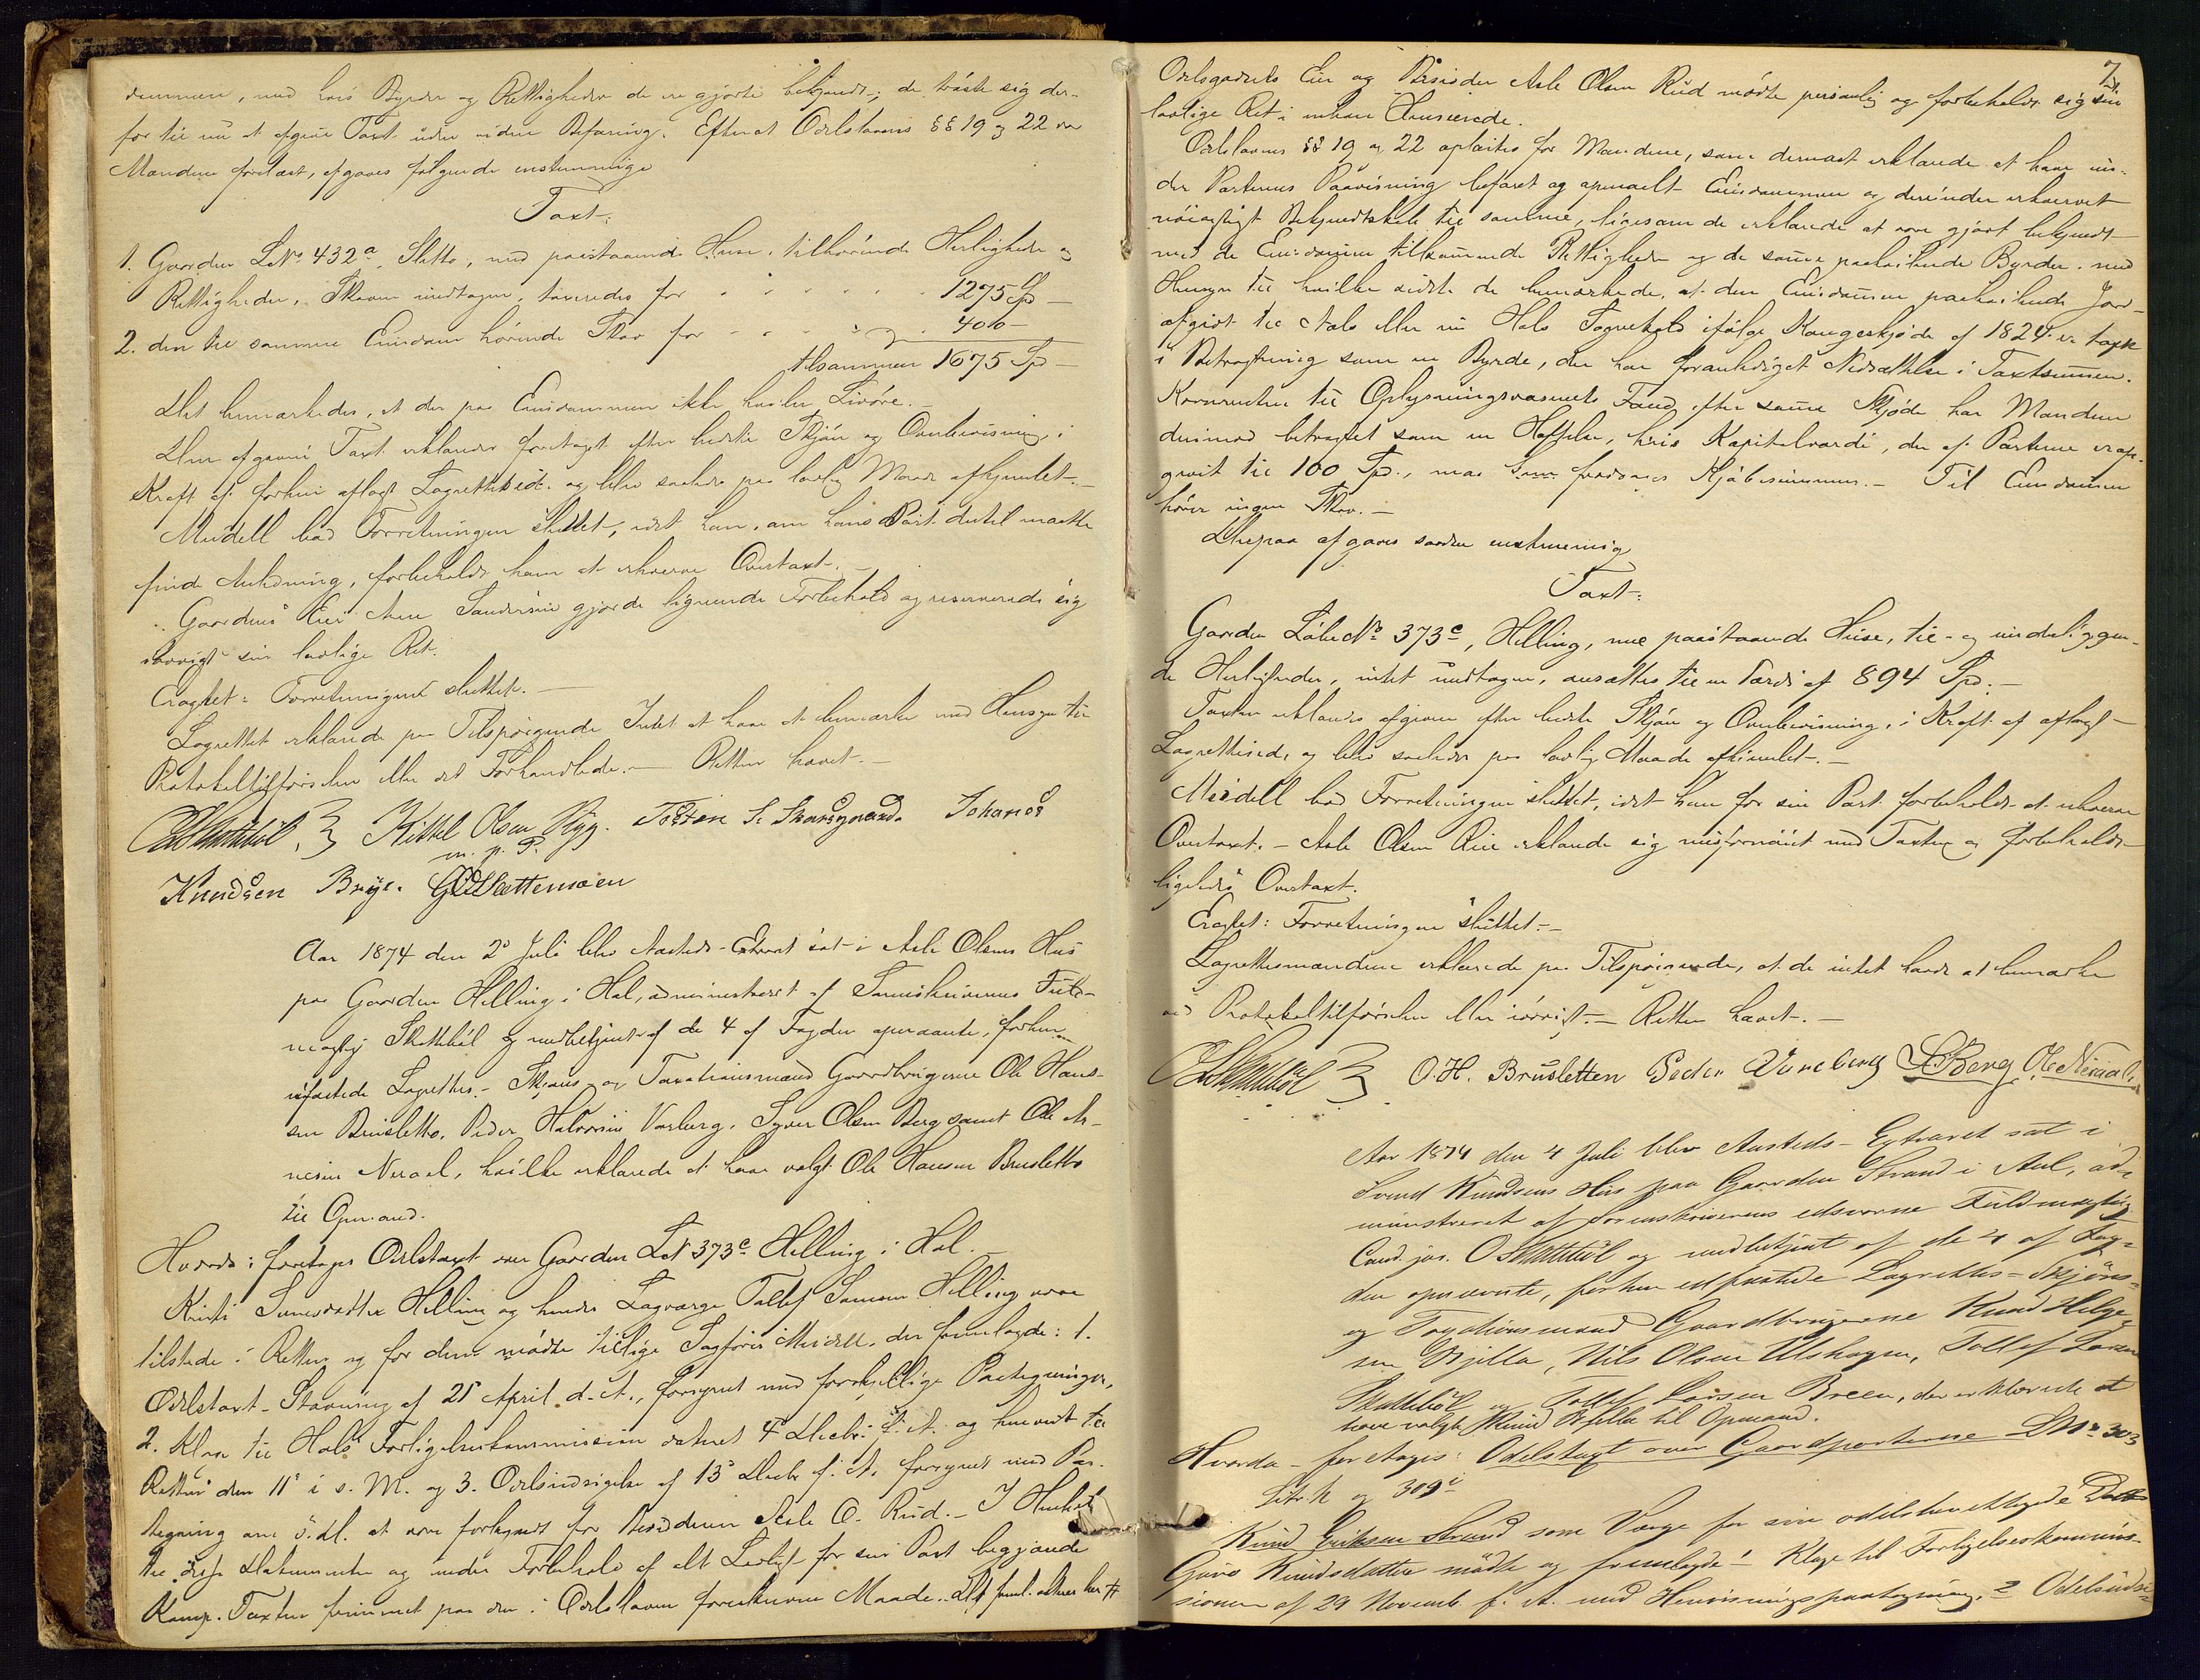 dommen, med hvis Byrder og Rettigheder de ere gjorte bekjendt; de tröste sig der-
for til nu at afgive Taxt uden videre Befaring. Efterat Odelslovens §§ 19 og 22 var
Mændene forelæst, afgaves følgende enstemmige
Taxt:
1. Gaarden L.No 432a, Sletto, med paastaaende Huse, tilhörende Herligheder og
Rettigheder, Skoven undtagen, taxeredes for - - - - - 1275 Spd
2. den til samme Eiendom hörende Skov for - - - - 400 -
tilsammen 1675 Spd -
Det bemærkedes, at der paa Eiendommen ikke hviler Livöre.
Den afgivne Taxt erklæres foretaget efter bedste Skjön og Overbevisning, i
Kraft af forhen aflagt Lagrettesed og blev saaledes paa lovlig Maade afhjemlet.-
Meidell bad Forretningen sluttet, idet han, om hans Part dertil maatte
finde Anledning, forbeholdt ham at erhverve Overtaxt.-
Gaardens Eier Arne Sandersen gjorde lignende Forbehold og reserverede sig
iövrigt sin lovlige Ret.
Eragtet: Forretningen sluttet.-
Lagrettet erklærede paa Tilspörgende Intet at have at bemærke med Hensyn til
Protokoltilförselen eller det Forhandlede.- Retten hævet.-
OSkattebøl. Kittel Olsen Ryg. Tosten S. Skarsgaard. Johanes
m. p. P.
Knudsen Brye. Slettemoen
Aar 1874 den 2den Juli blev Aasteds-Extraret sat i Asle Olsens Hus
paa Gaarden Helling i Hol, administreret af Sorenskriverens Fuld-
mægtig Skattebøl og medbetjent af de 4 af Fogden opnævnte, forhen
edfæstede Lagrettes- Skjöns- og Taxationsmænd Gaardbrugerne Ole Han-
sen Brusletto, Peder Halvorsen Varberg, Syver Olsen Berg samt Ole Ar-
nesen Neraal, hvilke erklærede at have valgt Ole Hansen Brusletto
til Opmand.
Hvorda: foretages Odelstaxt over Gaarden L.No 373c Helling i Hol.
Kristi Simensdatter Helling og hendes Lagværge Tollef Simensen Helling vare
tilstede i Retten og for dem mödte tillige Sagförer Meidell, der fremlagde: 1.
Odelstaxt-Stævning af 21 April d. A., forsynet med forskjellige Paategninger,
2. Klage til Hols Forligelseskommission dateret 4de Decbr. f. A. og henvist til
Retten den 11te i s. M. og 3. Odelsindsigelse af 13de Decbr f. A. forsynet med Paa-
tegning om s. D. at være forkyndt for Besidderen Asle O. Rud.- I Henhold
til disse Dokumenter og under Forbehold af alt Lovligt for sin Part begjærede
Komp. Taxten fremmet paa den i Odelsloven foreskrevne Maade. Det freml. aktes her #
7
Odelsgodsets Eier og Besidder Asle Olsen Rud mödte personlig og forbeholdt sig sin
lovlige Ret i enhver Henseende.
Odelslovens §§ 19 og 22 oplæstes for Mændene, som dernæst erklærede at have un-
der Parternes Paavisning befaret og opmaalt Eiendommen og derunder erhvervet
nöiagtigt Bekjendtskab til samme, ligesom de erklærede at være gjort bekjendt
med de Eiendommen tilkommende Rettigheder og de samme paahvilende Byrder, med
Hensyn til hvilke sidste de bemærkede, at den Eiendommen paahvilende Jord-
afgivt til Aals eller nu Hols Sognekald ifölge Kongeskjøde af 1824 er taget
i Betragtning som en Byrde, der har foranlediget Nedsættelse i Taxtsummen.
Kornrenten til Oplysningsvæsenets Fond efter samme Skjöde har Mændene
derimod betragtet som en Heftelse, hvis Kapitalværdi, der af Parterne er op-
givet til 100 Spd., maa fradrages Kjöbesummen.- Til Eiendommen
hörer ingen Skov.-
Derpaa afgaves saadan enstemmig
Taxt:
Gaarden LöbeNo 373c, Helling, med paastaaende Huse, til- og underliggen-
de Herligheder, intet undtagen, ansættes til en Værdi af 894 Spd.-
Taxten erklæres afgiven efter bedste Skjön og Overbevisning, i Kraft af aflagt
Lagrettesed, og blev saaledes paa lovlig Maade afhjemlet.-
Meidell bad Forretningen sluttet, idet han for sin Part forbeholdt at erhverve
Overtaxt.- Asle Olsen Rud erklærede sig misfornöiet med Taxten og forbeholdt
ligeledes Overtaxt.
Eragtet: Forretningen sluttet.-
Lagrettesmændene erklærede paa Tilspörgende, at de intet havde at bemærke
ved Protokoltilförselen eller iövrigt.- Retten hævet.-
OSkattebøl O.H. Brusletten Peder Vareberg S.O.Berg Ole Neraal.
Aar 1874 den 4 Juli blev Aasteds-Extraret sat i
Svend Knudsens Hus paa Gaarden Strand i Aal, ad-
ministreret af Sorenskriverens edsvorne Fuldmægtig
Cand. jur. O Skattebøl og medbetjent af de 4 af Fog-
den opnævnte, forhen edfæstede Lagrettes- Skjöns-
og Taxationsmænd Gaardbrugerne Knud Helge-
sen Kjilla, Nils Olsen Ulshagen, Tollef Larsen
Skattebøl og Tollef Larsen Breen, der erklærede at
have valgt Knud Kjilla til Opmand.
Hvorda - foretages: Odelstaxt over Gaardparterne L.No 303
Litr. h og 309i
Knud Eriksen Strand som Værge for sin odelsberettigede Datter
Guro Knudsdatter mödte og fremlagde 1 Klage til Forligelseskommis-
sionen af 29 Novemb. f. A. med Henvisningspaategning, 2 Odelsindsi-